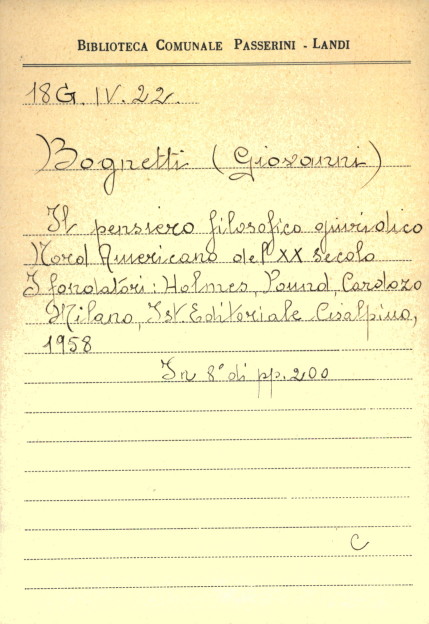 BIBLIOTECA COMUNALE PASSERINI - LANDI
18G. IV. 22.
Bognetti (Giovanni)
Il pensiero filosofico giuridico
Nord Americano del XX secolo
I fondatori: Holmes, Pound, Cardozo
Milano, Ist. Editoriale Cisalpino,
1958
In 8° di pp. 200
C